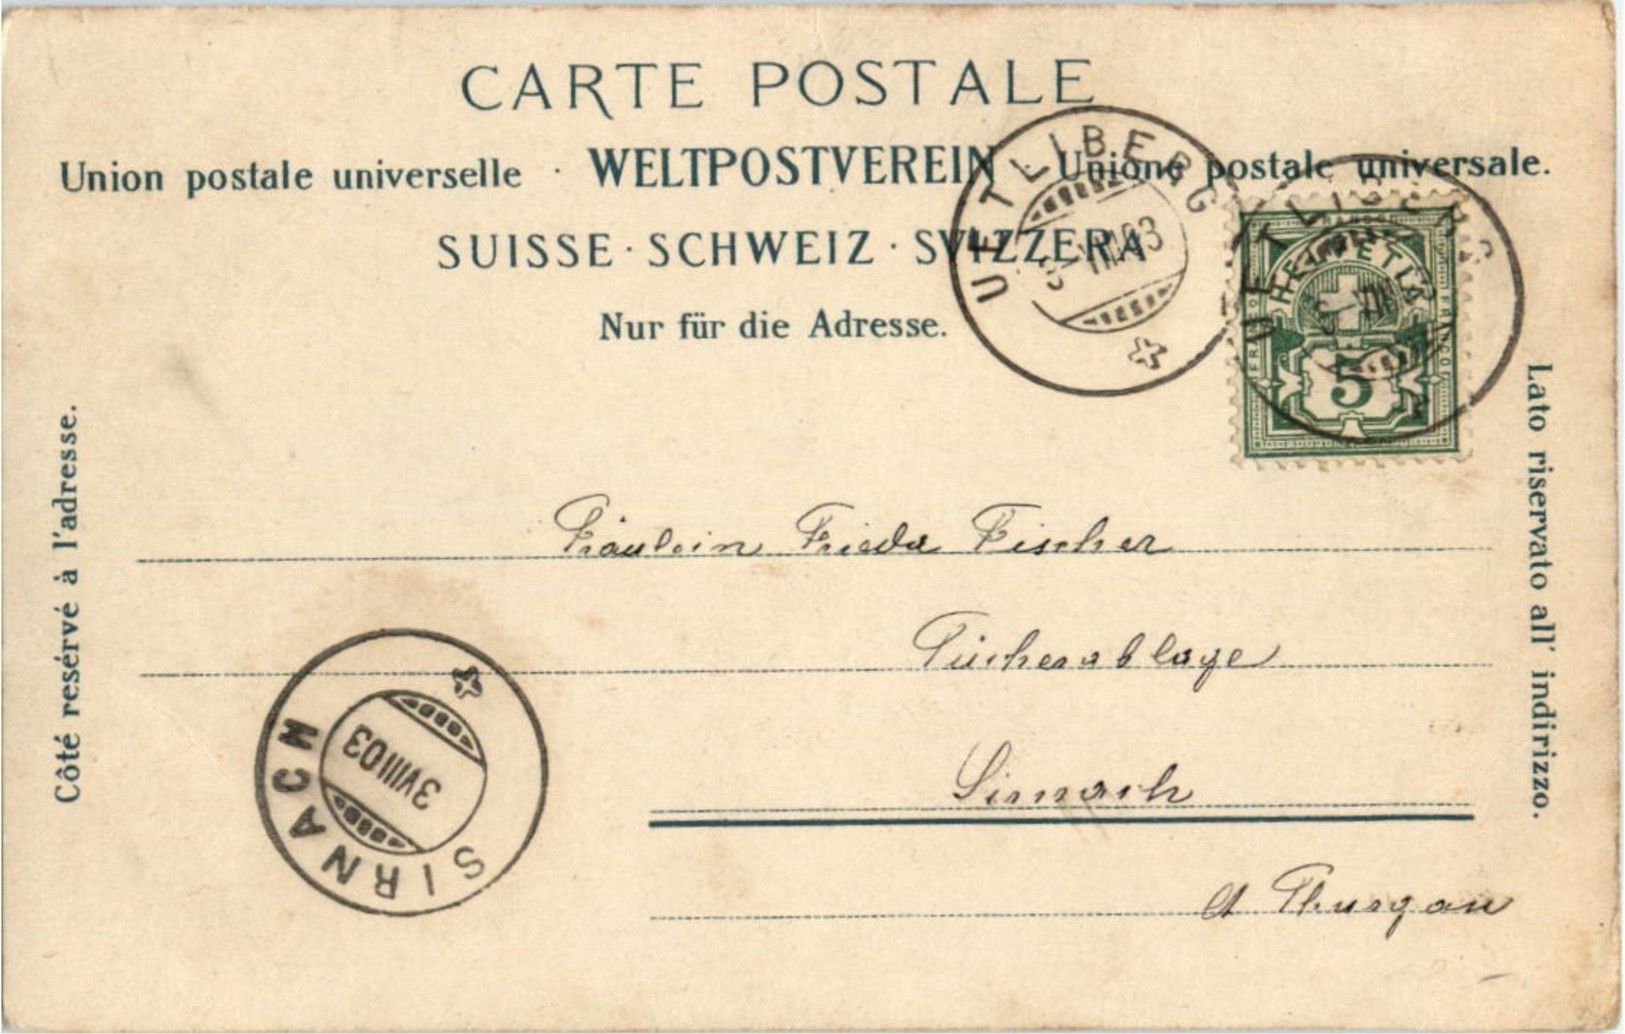 CARTE POSTALE
Union postale universelle · WELTPOSTVEREIN · Unione postale universale.
SUISSE · SCHWEIZ · SVIZZERA
Nur für die Adresse.
Côté resérvé à l'adresse.
Lato riservato all' indirizzo.
UETLIBERG
VIII 03
UETLIBERG
VIII
HELVETIA
FRANCO
5
Fräulein Frieda Fischer
Sirnach
Ct Thurgau
SIRNACH
3 VIII 03